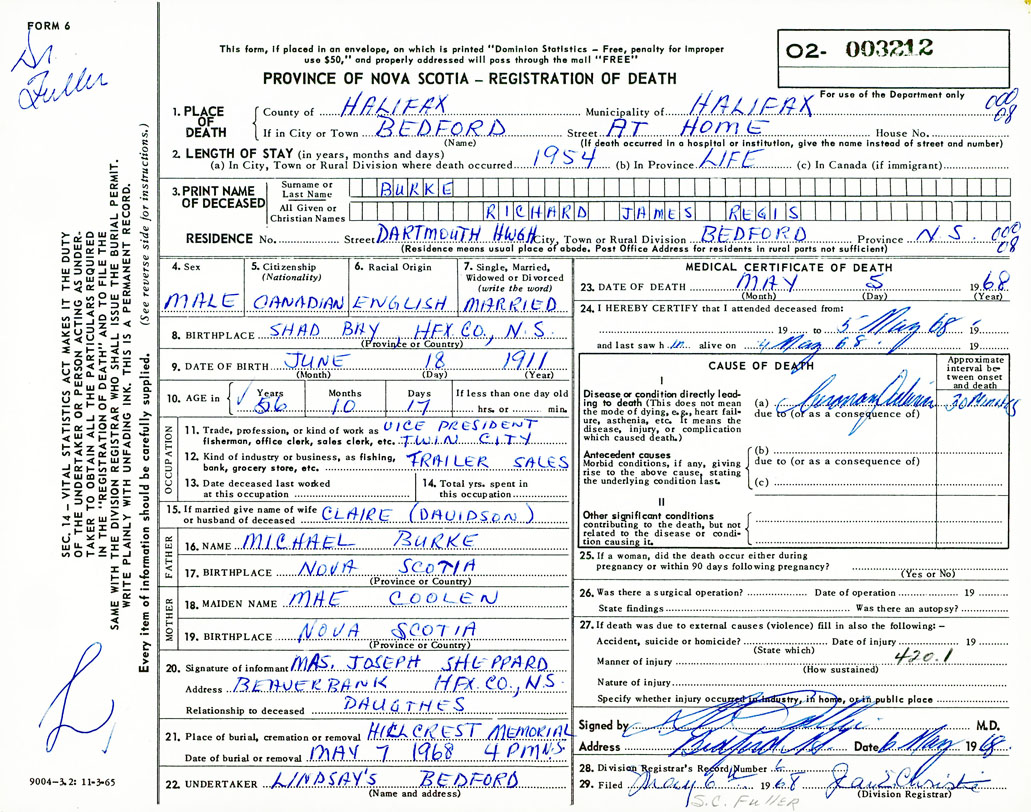 FORM 6
Dr. Fuller
This form, if placed in an envelope, on which is printed "Dominion Statistics – Free, penalty for improper
use $50," and properly addressed will pass through the mail "FREE"
PROVINCE OF NOVA SCOTIA – REGISTRATION OF DEATH
02- 003212
For use of the Department only
1. PLACE OF DEATH County of HALIFAX Municipality of HALIFAX 000 08
If in City or Town BEDFORD Street AT HOME House No.
(Name) (If death occurred in a hospital or institution, give name instead of street and number)
2. LENGTH OF STAY (in years, months and days)
(a) In City, Town or Rural Division where death occurred 1954 (b) In Province LIFE (c) In Canada (if immigrant)
3. PRINT NAME OF DECEASED Surname or Last Name BURKE
All Given or Christian Names RICHARD JAMES REGIS
RESIDENCE No. Street DARTMOUTH HWGH City, Town or Rural Division BEDFORD Province N S. 000 08
(Residence means usual place of abode. Post Office Address for residents in rural parts not sufficient)
4. Sex MALE
5. Citizenship (Nationality) CANADIAN
6. Racial Origin ENGLISH
7. Single, Married, Widowed or Divorced (write the word) MARRIED
8. BIRTHPLACE SHAD BAY, HFX.CO., N.S.
(Province or Country)
9. DATE OF BIRTH JUNE 18 1911
(Month) (Day) (Year)
10. AGE in Years 56 Months 10 Days 17 If less than one day old hrs. or min.
OCCUPATION
11. Trade, profession, or kind of work as VICE PRESIDENT
fisherman, office clerk, sales clerk, etc. TWIN CITY
12. Kind of industry or business, as fishing, TRAILER SALES
bank, grocery store, etc.
13. Date deceased last worked at this occupation
14. Total yrs. spent in this occupation
15. If married give name of wife or husband of deceased CLAIRE (DAVIDSON)
FATHER
16. NAME MICHAEL BURKE
17. BIRTHPLACE NOVA SCOTIA
(Province or Country)
MOTHER
18. MAIDEN NAME MAE COOLEN
19. BIRTHPLACE NOVA SCOTIA
(Province or Country)
20. Signature of informant MAS. JOSEPH SHEPPARD
Address BEAVERBANK HFX.CO., N.S.
Relationship to deceased DAUGTHES
21. Place of burial, cremation or removal HILLCREST MEMORIAL
Date of burial or removal MAY 7 1968 4 PM N.S
22. UNDERTAKER LINDSAY'S BEDFORD
(Name and address)
MEDICAL CERTIFICATE OF DEATH
23. DATE OF DEATH MAY 5 1968
(Month) (Day) (Year)
24. I HEREBY CERTIFY that I attended deceased from:
19 to 5 May 68 19
and last saw h im alive on 4 May 68. 19
CAUSE OF DEATH
Approximate interval between onset and death
I
Disease or condition directly leading to death (This does not mean the mode of dying, e.g., heart failure, asthenia, etc. It means the disease, injury, or complication which caused death.)
(a) 30 Minutes
due to (or as a consequence of)
Antecedent causes
Morbid conditions, if any, giving rise to the above cause, stating the underlying condition last.
(b)
due to (or as a consequence of)
(c)
II
Other significant conditions
contributing to the death, but not related to the disease or condition causing it.
25. If a woman, did the death occur either during
pregnancy or within 90 days following pregnancy?
(Yes or No)
26. Was there a surgical operation? Date of operation 19
State findings Was there an autopsy?
27. If death was due to external causes (violence) fill in also the following: –
Accident, suicide or homicide? Date of injury 19
(State which)
Manner of injury 420.1
(How sustained)
Nature of injury
Specify whether injury occurred in industry, in home, or in public place
Signed by M.D.
Address Bedford NS Date 6 May 1968
28. Division Registrar's Record Number
29. Filed May 6th 1968 Christie
(Division Registrar)
S.C. Fuller
SEC. 14 – VITAL STATISTICS ACT MAKES IT THE DUTY
OF THE UNDERTAKER OR PERSON ACTING AS UNDER-
TAKER TO OBTAIN ALL THE PARTICULARS REQUIRED
IN THE "REGISTRATION OF DEATH" AND TO FILE THE
SAME WITH THE DIVISION REGISTRAR WHO SHALL ISSUE THE BURIAL PERMIT.
WRITE PLAINLY WITH UNFADING INK. THIS IS A PERMANENT RECORD.
Every item of information should be carefully supplied. (See reverse side for instructions.)
9004-3.2: 11-3-65